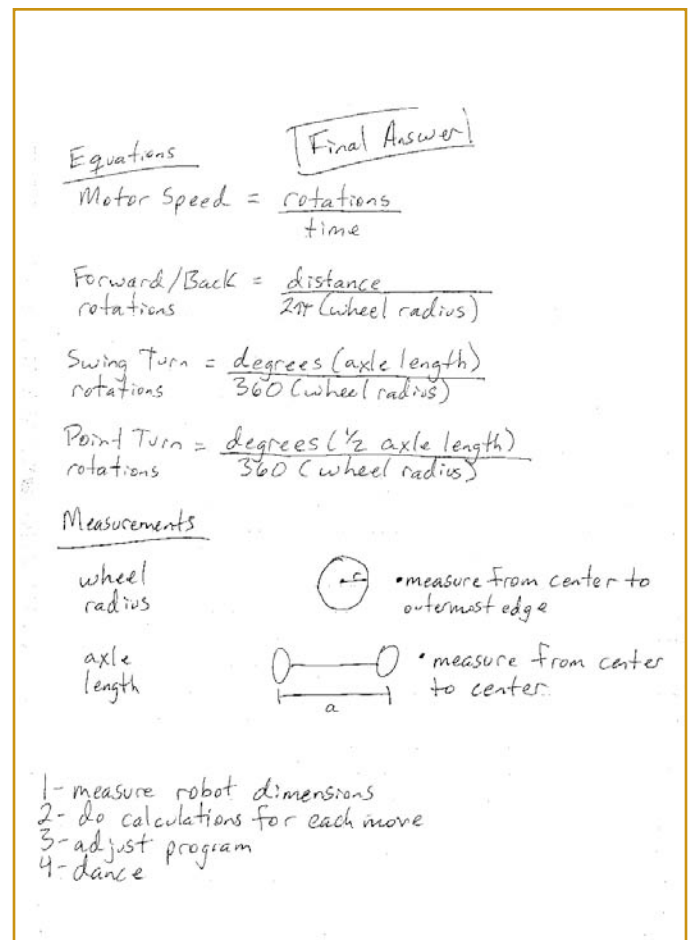 Final Answer
Equations
Motor Speed = rotations
time
Forward/Back = distance
rotations 2π(wheel radius)
Swing Turn = degrees (axle length)
rotations 360 (wheel radius)
Point Turn = degrees (1/2 axle length)
rotations 360 (wheel radius)
Measurements
wheel
radius
r
•measure from center to
outermost edge
axle
length
a
•measure from center
to center
1- measure robot dimensions
2- do calculations for each move
3- adjust program
4- dance